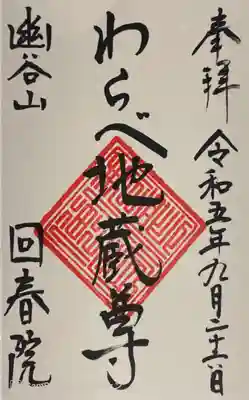 奉拝
令和五年九月二十二日
わらべ地蔵尊
幽谷山
回春院